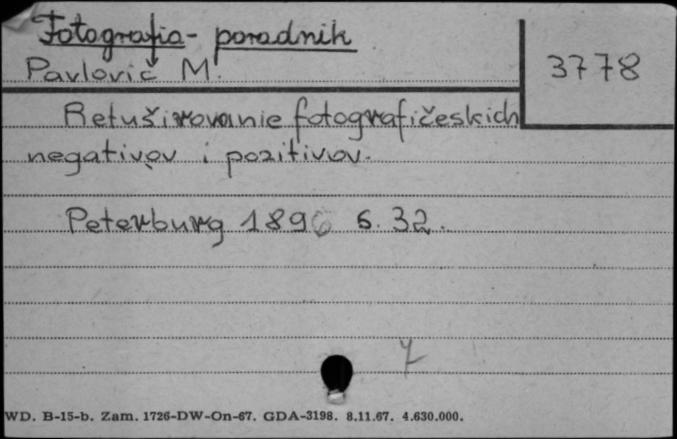 Fotografia - poradnik
Pavlovič M.
3778
Retuširovanie fotografičeskich
negativov i pozitivov.
Peterburg 1896 s. 32.
WD. B-15-b. Zam. 1726-DW-On-67. GDA-3198. 8.11.67. 4.630.000.